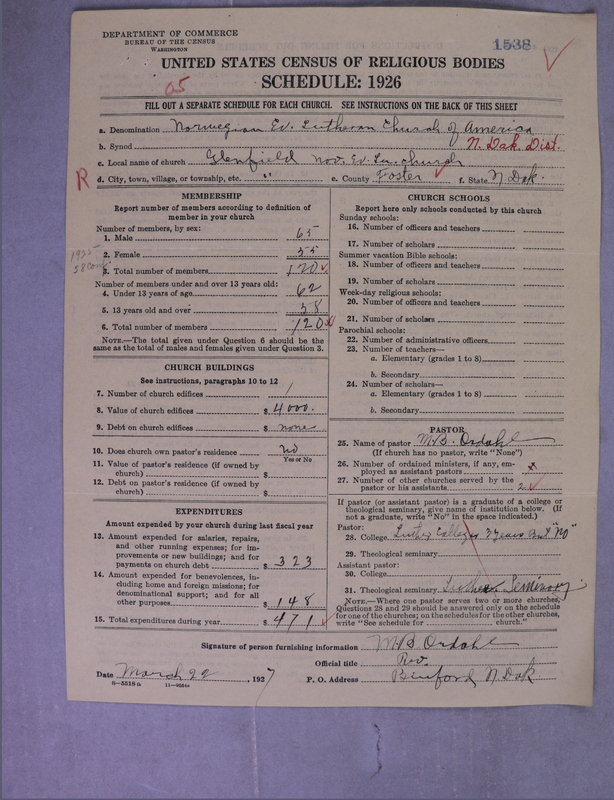 DEPARTMENT OF COMMERCE
BUREAU OF THE CENSUS
WASHINGTON
1538
UNITED STATES CENSUS OF RELIGIOUS BODIES
SCHEDULE: 1926
05
FILL OUT A SEPARATE SCHEDULE FOR EACH CHURCH. SEE INSTRUCTIONS ON THE BACK OF THIS SHEET
a. Denomination Norwegian Ev. Lutheran Church of America
b. Synod N. Dak. Dist.
c. Local name of church Glenfield Nor. Ev. Lu. church
R
d. City, town, village, or township, etc. " e. County Foster f. State N Dak.
MEMBERSHIP
Report number of members according to definition of
member in your church
Number of members, by sex:
1. Male 65
2. Female 55
3. Total number of members 120
Number of members under and over 13 years old:
4. Under 13 years of age 62
5. 13 years old and over 58
6. Total number of members 120
NOTE.—The total given under Question 6 should be
same as the total of males and females given under Question 3.
CHURCH BUILDINGS
See instructions, paragraphs 10 to 12
7. Number of church edifices 1
8. Value of church edifices $ 4000.
9. Debt on church edifices $ none
10. Does church own pastor's residence no
Yes or No
11. Value of pastor's residence (if owned by
church) $
12. Debt on pastor's residence (if owned by
church) $
EXPENDITURES
Amount expended by your church during last fiscal year
13. Amount expended for salaries, repairs,
and other running expenses; for im-
provements or new buildings; and for
payments on church debt $ 323
14. Amount expended for benevolences, in-
cluding home and foreign missions; for
denominational support; and for all
other purposes $ 148
15. Total expenditures during year $ 471
CHURCH SCHOOLS
Report here only schools conducted by this church
Sunday schools:
16. Number of officers and teachers
17. Number of scholars
Summer vacation Bible schools:
18. Number of officers and teachers
19. Number of scholars
Week-day religious schools:
20. Number of officers and teachers
21. Number of scholars
Parochial schools:
22. Number of administrative officers
23. Number of teachers—
a. Elementary (grades 1 to 8)
b. Secondary
24. Number of scholars—
a. Elementary (grades 1 to 8)
b. Secondary
PASTOR
25. Name of pastor M. B. Ordahl
(If church has no pastor, write "None")
26. Number of ordained ministers, if any, em-
ployed as assistant pastors
27. Number of other churches served by the
pastor or his assistants 2
If pastor (or assistant pastor) is a graduate of a college or
theological seminary, give name of institution below. (If
not a graduate, write "No" in the space indicated.)
Pastor:
28. College Luther College 3 years But "No"
29. Theological seminary
Assistant pastor:
30. College
31. Theological seminary Luther Seminary
NOTE.—Where one pastor serves two or more churches,
Questions 28 and 29 should be answered only on the schedule
for one of the churches; on the schedules for the other churches,
write "See schedule for church."
Signature of person furnishing information M B Ordahl
Official title Rev.
Date March 22, 1927 P. O. Address Binford N Dak
8—5518a 11—9054